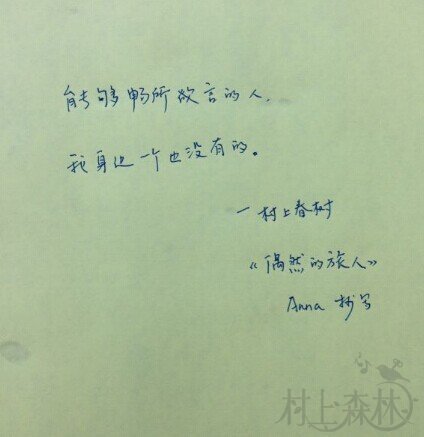 能够畅所欲言的人，
我身边一个也没有的。
一村上春树
《偶然的旅人》
Anna 抄写
村上森林